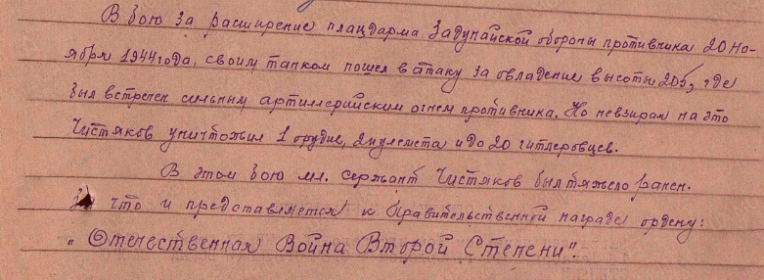 В бою за расширение плацдарма Задунайской обороны противника 20 но-
ября 1944 года, своим танком пошел в атаку за овладение высоты 205, где
был встречен сильным артиллерийским огнем противника. Но невзирая на это
Чистяков уничтожил 1 орудие, 2 пулемета и до 20 гитлеровцев.
В этом бою мл. сержант Чистяков был тяжело ранен.
За что и представляется к Правительственной награде ордену:
"Отечественная Война Второй Степени".